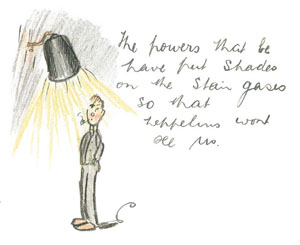 The powers that be
have put shades
on the stair gases
so that
zeppelins wont
see us.